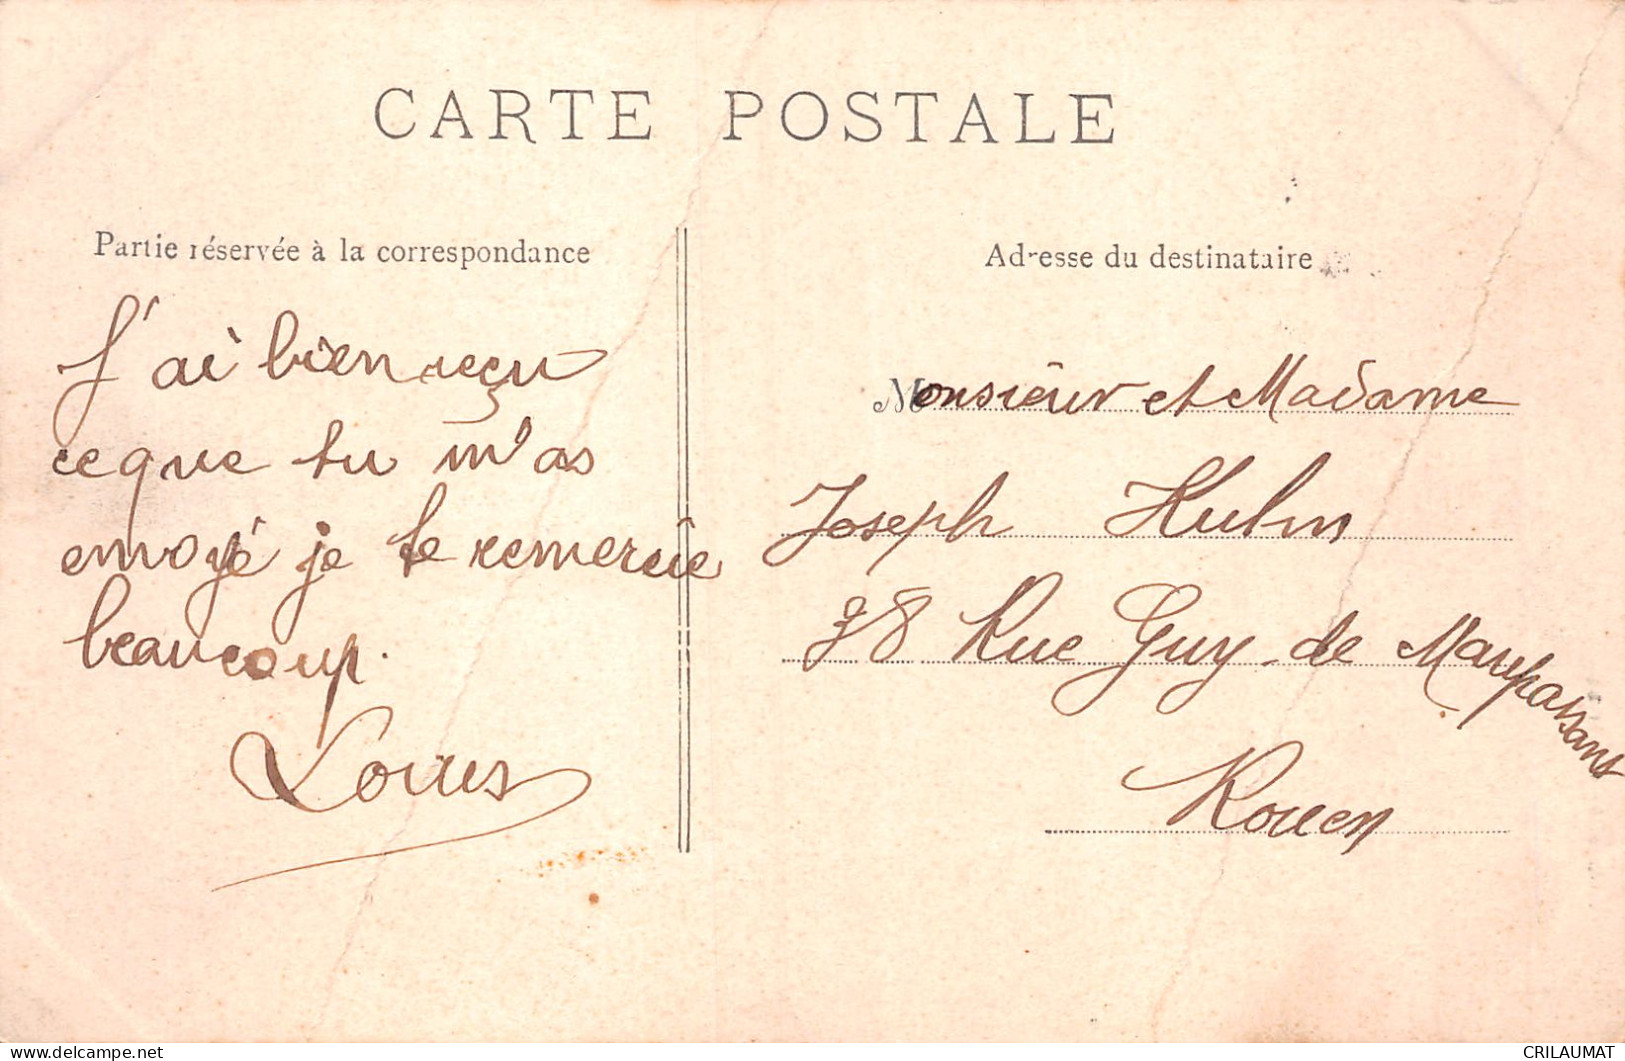 CARTE POSTALE
Partie réservée à la correspondance
J'ai bien reçu
ce que tu m'as
envoyé je te remercie
beaucoup.
Louis
Adresse du destinataire
Monsieur et Madame
Joseph Kuhn
78 Rue Guy de Maupassant
Rouen
CRILAUMAT